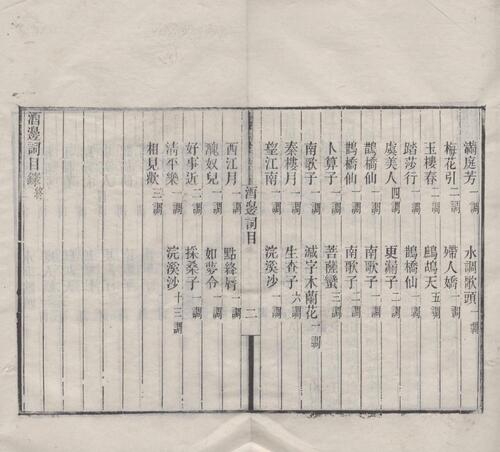 滿庭芳一調　水調歌頭一調
梅花引二調　殢人嬌一調
玉樓春二調　鷓鴣天五調
踏莎行一調　鵲橋仙一調
虞美人四調　更漏子二調
鵲橋仙一調　南歌子一調
鵲橋仙一調　南歌子二調
卜算子一調　菩薩蠻三調
南歌子一調　減字木蘭花一調
秦樓月一調　生查子六調
望江南一調　浣溪沙一調
酒邊詞目　二
西江月一調　點絳唇一調
醜奴兒一調　如夢令一調
好事近二調　採桑子一調
清平樂一調　浣溪沙十三調
相見歡三調
酒邊詞目錄終